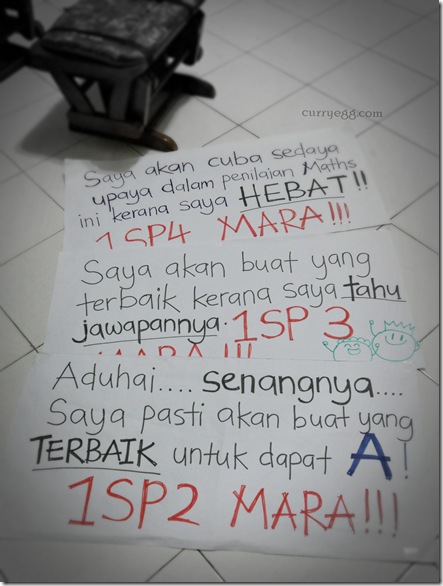 curryegg.com
Saya akan cuba sedaya
upaya dalam penilaian Maths
ini kerana saya HEBAT!!
1SP4 MARA!!!
Saya akan buat yang
terbaik kerana saya tahu
jawapannya. 1SP3
MARA!!!
Aduhai.... senangnya....
Saya pasti akan buat yang
TERBAIK untuk dapat A!
1SP2 MARA!!!